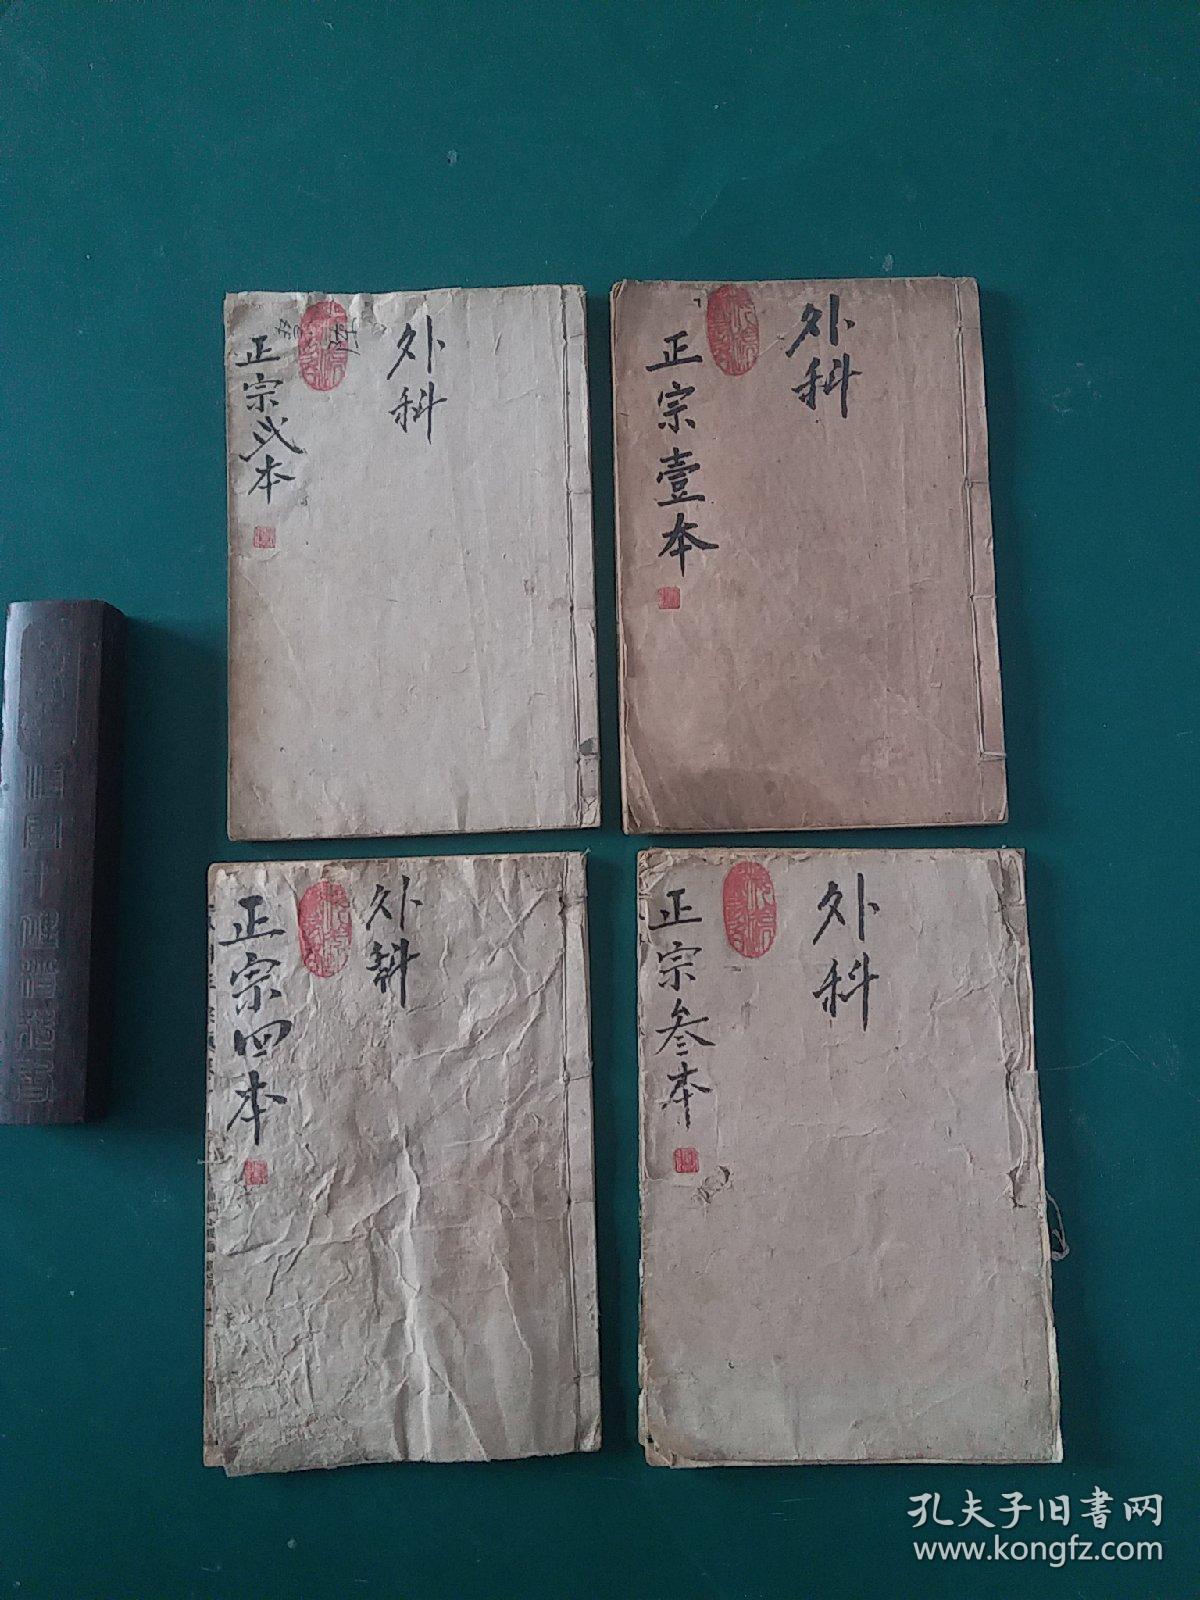 外科
正宗壹本
外科
正宗弍本
外科
正宗叁本
外科
正宗四本
孔夫子旧书网
www.kongfz.com